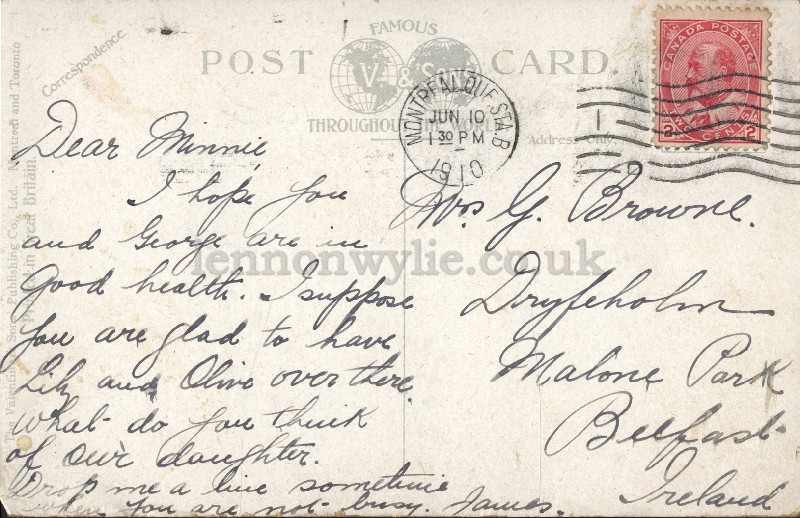 FAMOUS
POST CARD.
V & S
THROUGHOUT THE WORLD
Correspondence
Address Only.
The Valentine & Sons Publishing Co., Ltd. Montreal and Toronto
Printed in Great Britain.
MONTREAL. QUE. STA. B
JUN 10
1 30 PM
1910
CANADA POSTAGE
2 TWO CENTS 2
Dear Minnie,
I hope you
and George are in
Good health. I suppose
you are glad to have
Lily and Olive over there.
What do you think
of our daughter.
Drop me a line sometime
when you are not busy. James.
Mrs G. Browne.
Dryfeholm
Malone Park
Belfast
Ireland
lennonwylie.co.uk